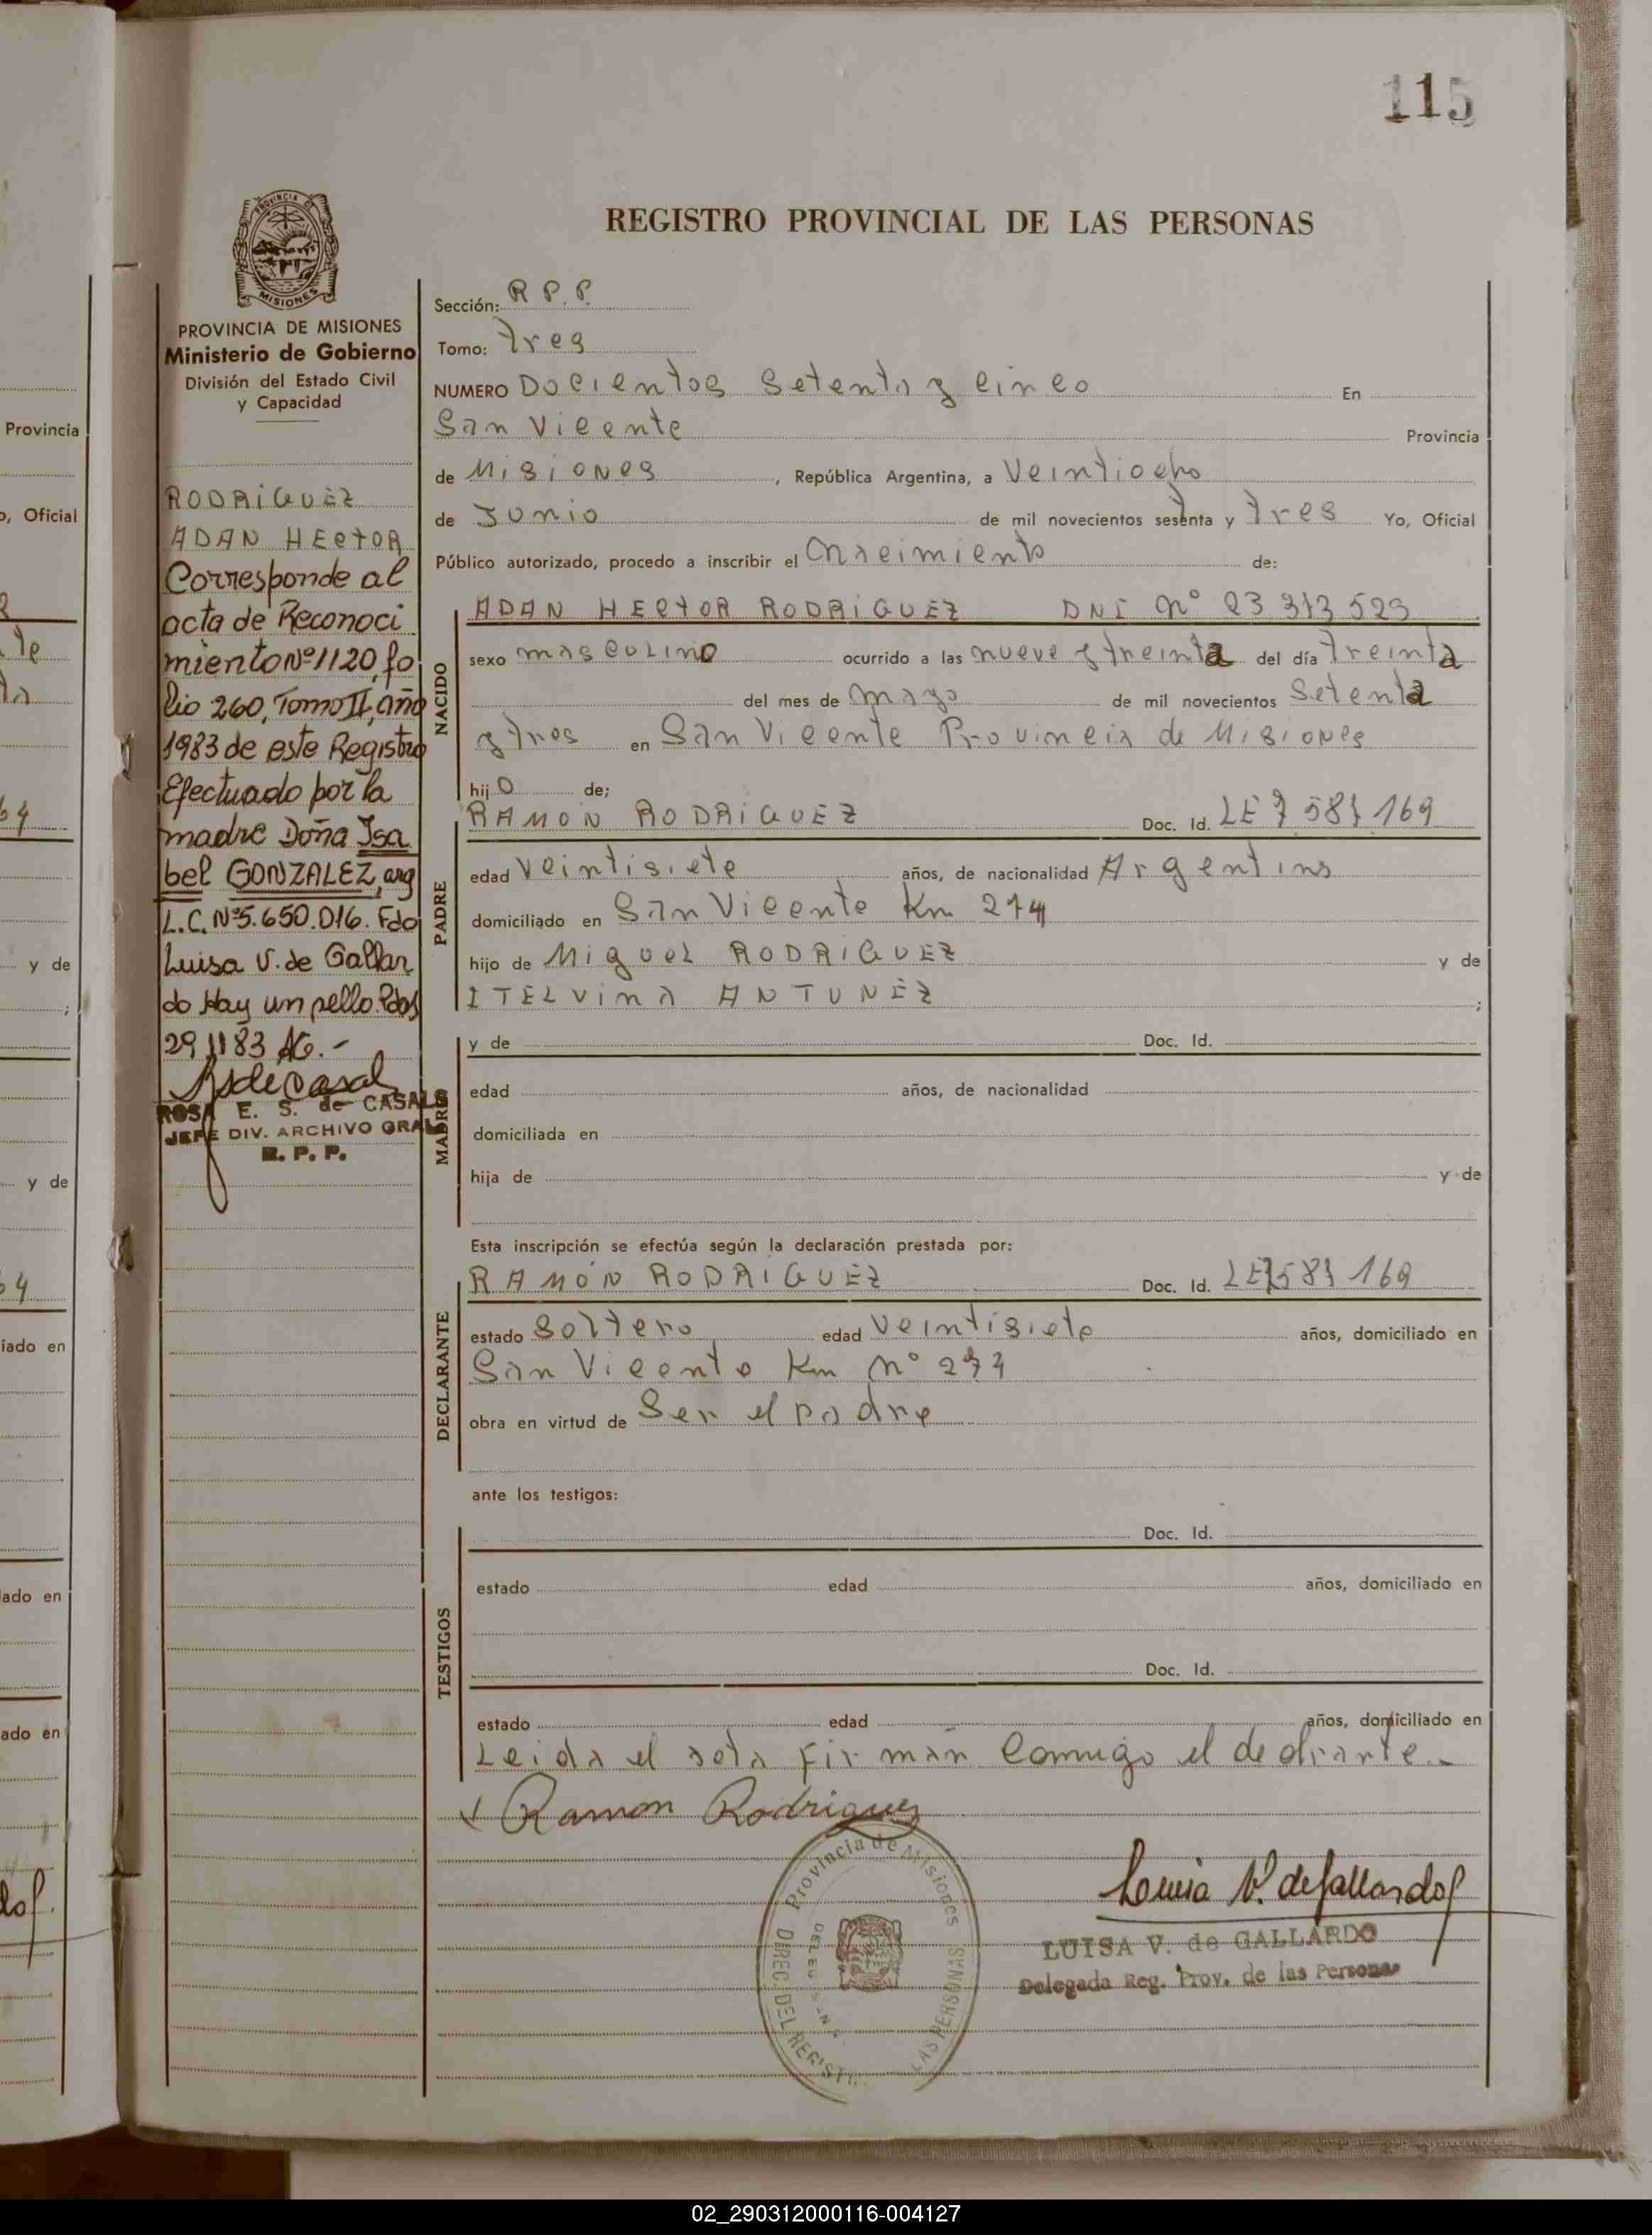 115
REGISTRO PROVINCIAL DE LAS PERSONAS
PROVINCIA DE
MISIONES
PROVINCIA DE MISIONES
Ministerio de Gobierno
División del Estado Civil
y Capacidad
RODRÍGUEZ
ADAN HECTOR
Corresponde al
acta de Reconoci
miento Nº 1120, fo
lio 260, Tomo II, año
1983 de este Registro
Efectuado por la
madre Doña Isa
bel GONZALEZ, arg
L.C. Nº 5.650.016. Fdo
Luisa V. de Gallar
do Hay un sello. Pdas
29 11 83
ROSA E. S. de CASALS
JEFE DIV. ARCHIVO GRAL
R. P. P.
Sección: R P. P.
Tomo: tres
NUMERO Docientos Setenta y cinco En
San Vicente Provincia
de Misiones, República Argentina, a Veintiocho
de Junio de mil novecientos setenta y tres Yo, Oficial
Público autorizado, procedo a inscribir el nacimiento de:
NACIDO
ADAN HECTOR RODRÍGUEZ DNI Nº 23 313 529
sexo masculino ocurrido a las nueve y treinta del día treinta
del mes de mayo de mil novecientos Setenta
y tres en San Vicente Provincia de Misiones
hijo de;
PADRE
RAMÓN RODRÍGUEZ Doc. Id. LE 7 587 169
edad Veintisiete años, de nacionalidad Argentino
domiciliado en San Vicente Km 274
hijo de Miguel RODRÍGUEZ y de
ITELVINA ANTUNEZ ;
MADRE
y de Doc. Id.
edad años, de nacionalidad
domiciliada en
hija de y de
Esta inscripción se efectúa según la declaración prestada por:
DECLARANTE
RAMÓN RODRIGUEZ Doc. Id. LE 7 587 169
estado Soltero edad Veintisiete años, domiciliado en
San Vicente Km Nº 274
obra en virtud de Ser el padre
ante los testigos:
TESTIGOS
Doc. Id.
estado edad años, domiciliado en
Doc. Id.
estado edad años, domiciliado en
Leida el acta firman conmigo el
Ramon Rodriguez
Provincia de Misiones
DIREC. DEL REGIST
LAS PERSONAS
Luisa V. de Gallardo
LUISA V. de GALLARDO
Delegada Reg. Prov. de las Personas
Provincia
o, Oficial
y de
;
y de
iado en
ado en
ado en
02_290312000116-004127